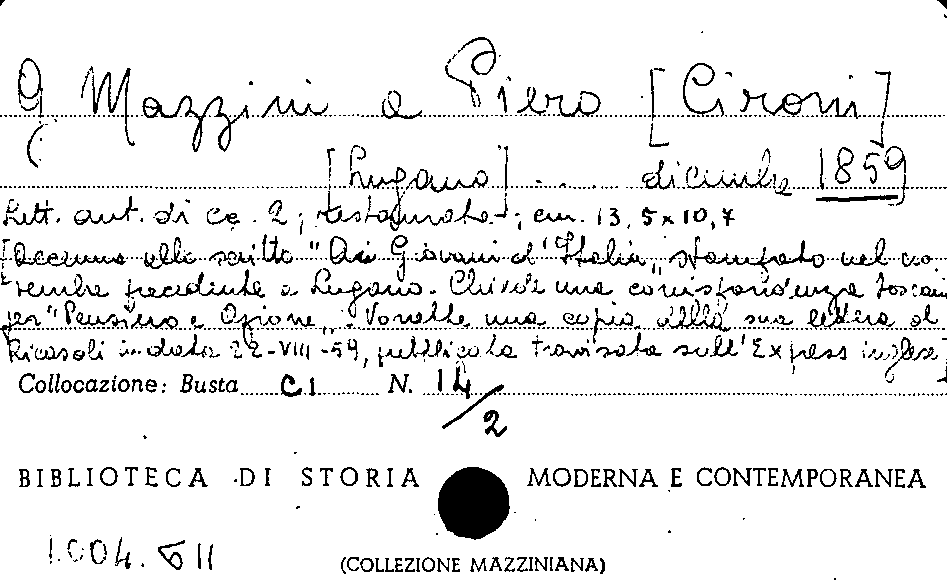 G. Mazzini a Piero [Cironi]
[Lugano] .... dicembre 1859
Lett. aut. di cc. 2; restaurata; cm. 13,5x10,7
[Accenno allo scritto "Ai Giovani d'Italia" stampato nel no
vembre precedente a Lugano. Chiede una corrispondenza toscana
per "Pensiero e Azione". Vorrebbe una copia della sua lettera al
Ricasoli in data 22-VIII-59, pubblicata travisata sull'Express inglese]
Collocazione: Busta C1 N. 14/2
BIBLIOTECA DI STORIA MODERNA E CONTEMPORANEA
1.004.611
(COLLEZIONE MAZZINIANA)